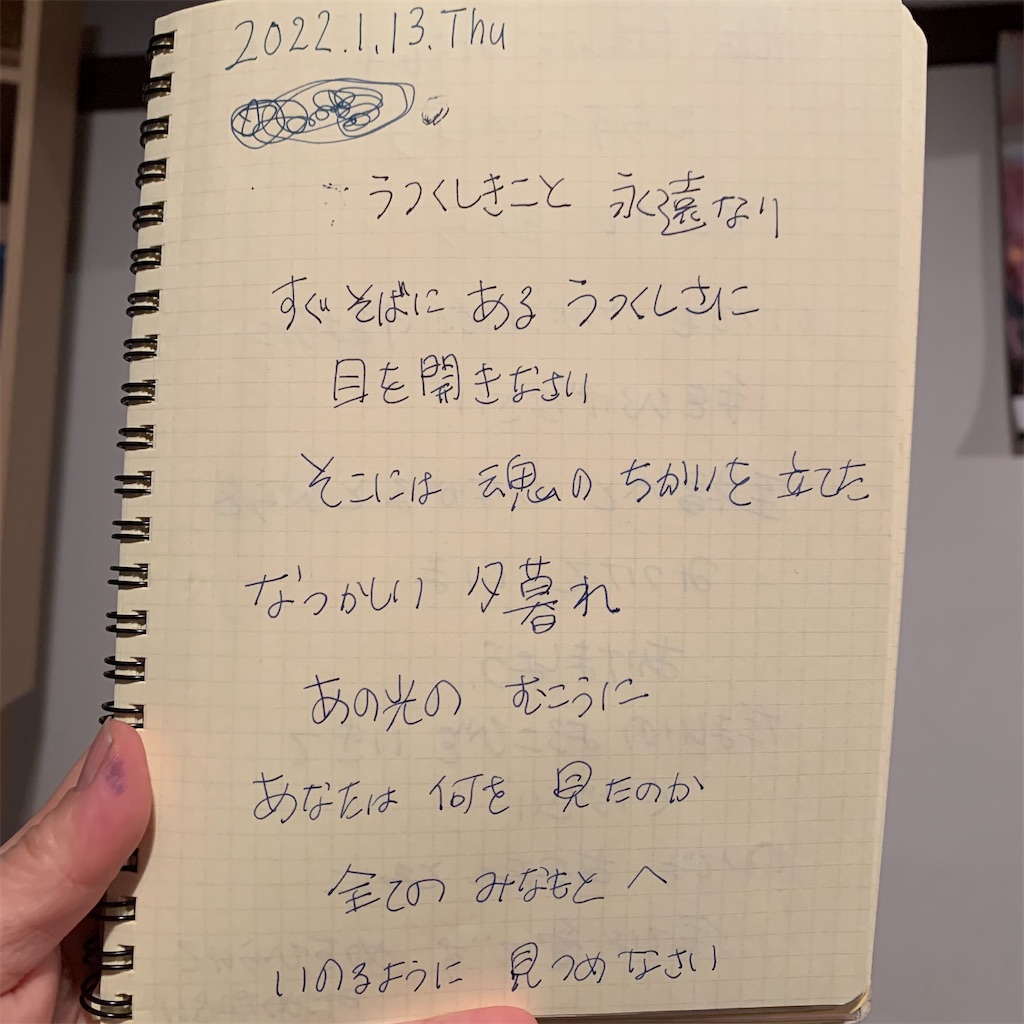 2022.1.13.Thu
うつくしきこと 永遠なり
すぐそばに ある うつくしさに
目を開きなさい
そこには 魂の ちかいを 立てた
なつかしい 夕暮れ
あの光の むこうに
あなたは 何を 見たのか
全ての みなもと へ
いのるように 見つめなさい